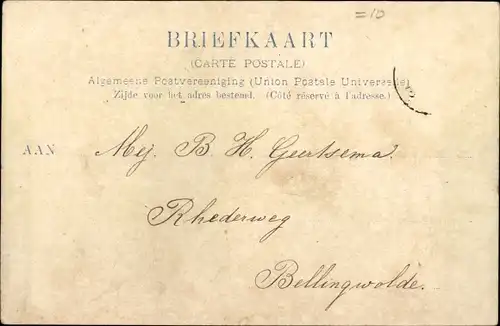 =10
BRIEFKAART
(CARTE POSTALE)
Algemeene Postvereeniging (Union Postale Universelle)
Zijde voor het adres bestemd. (Côté réservé à l'adresse.)
AAN Mej. B. H. Geertsema.
Rhederweg
Bellingwolde.